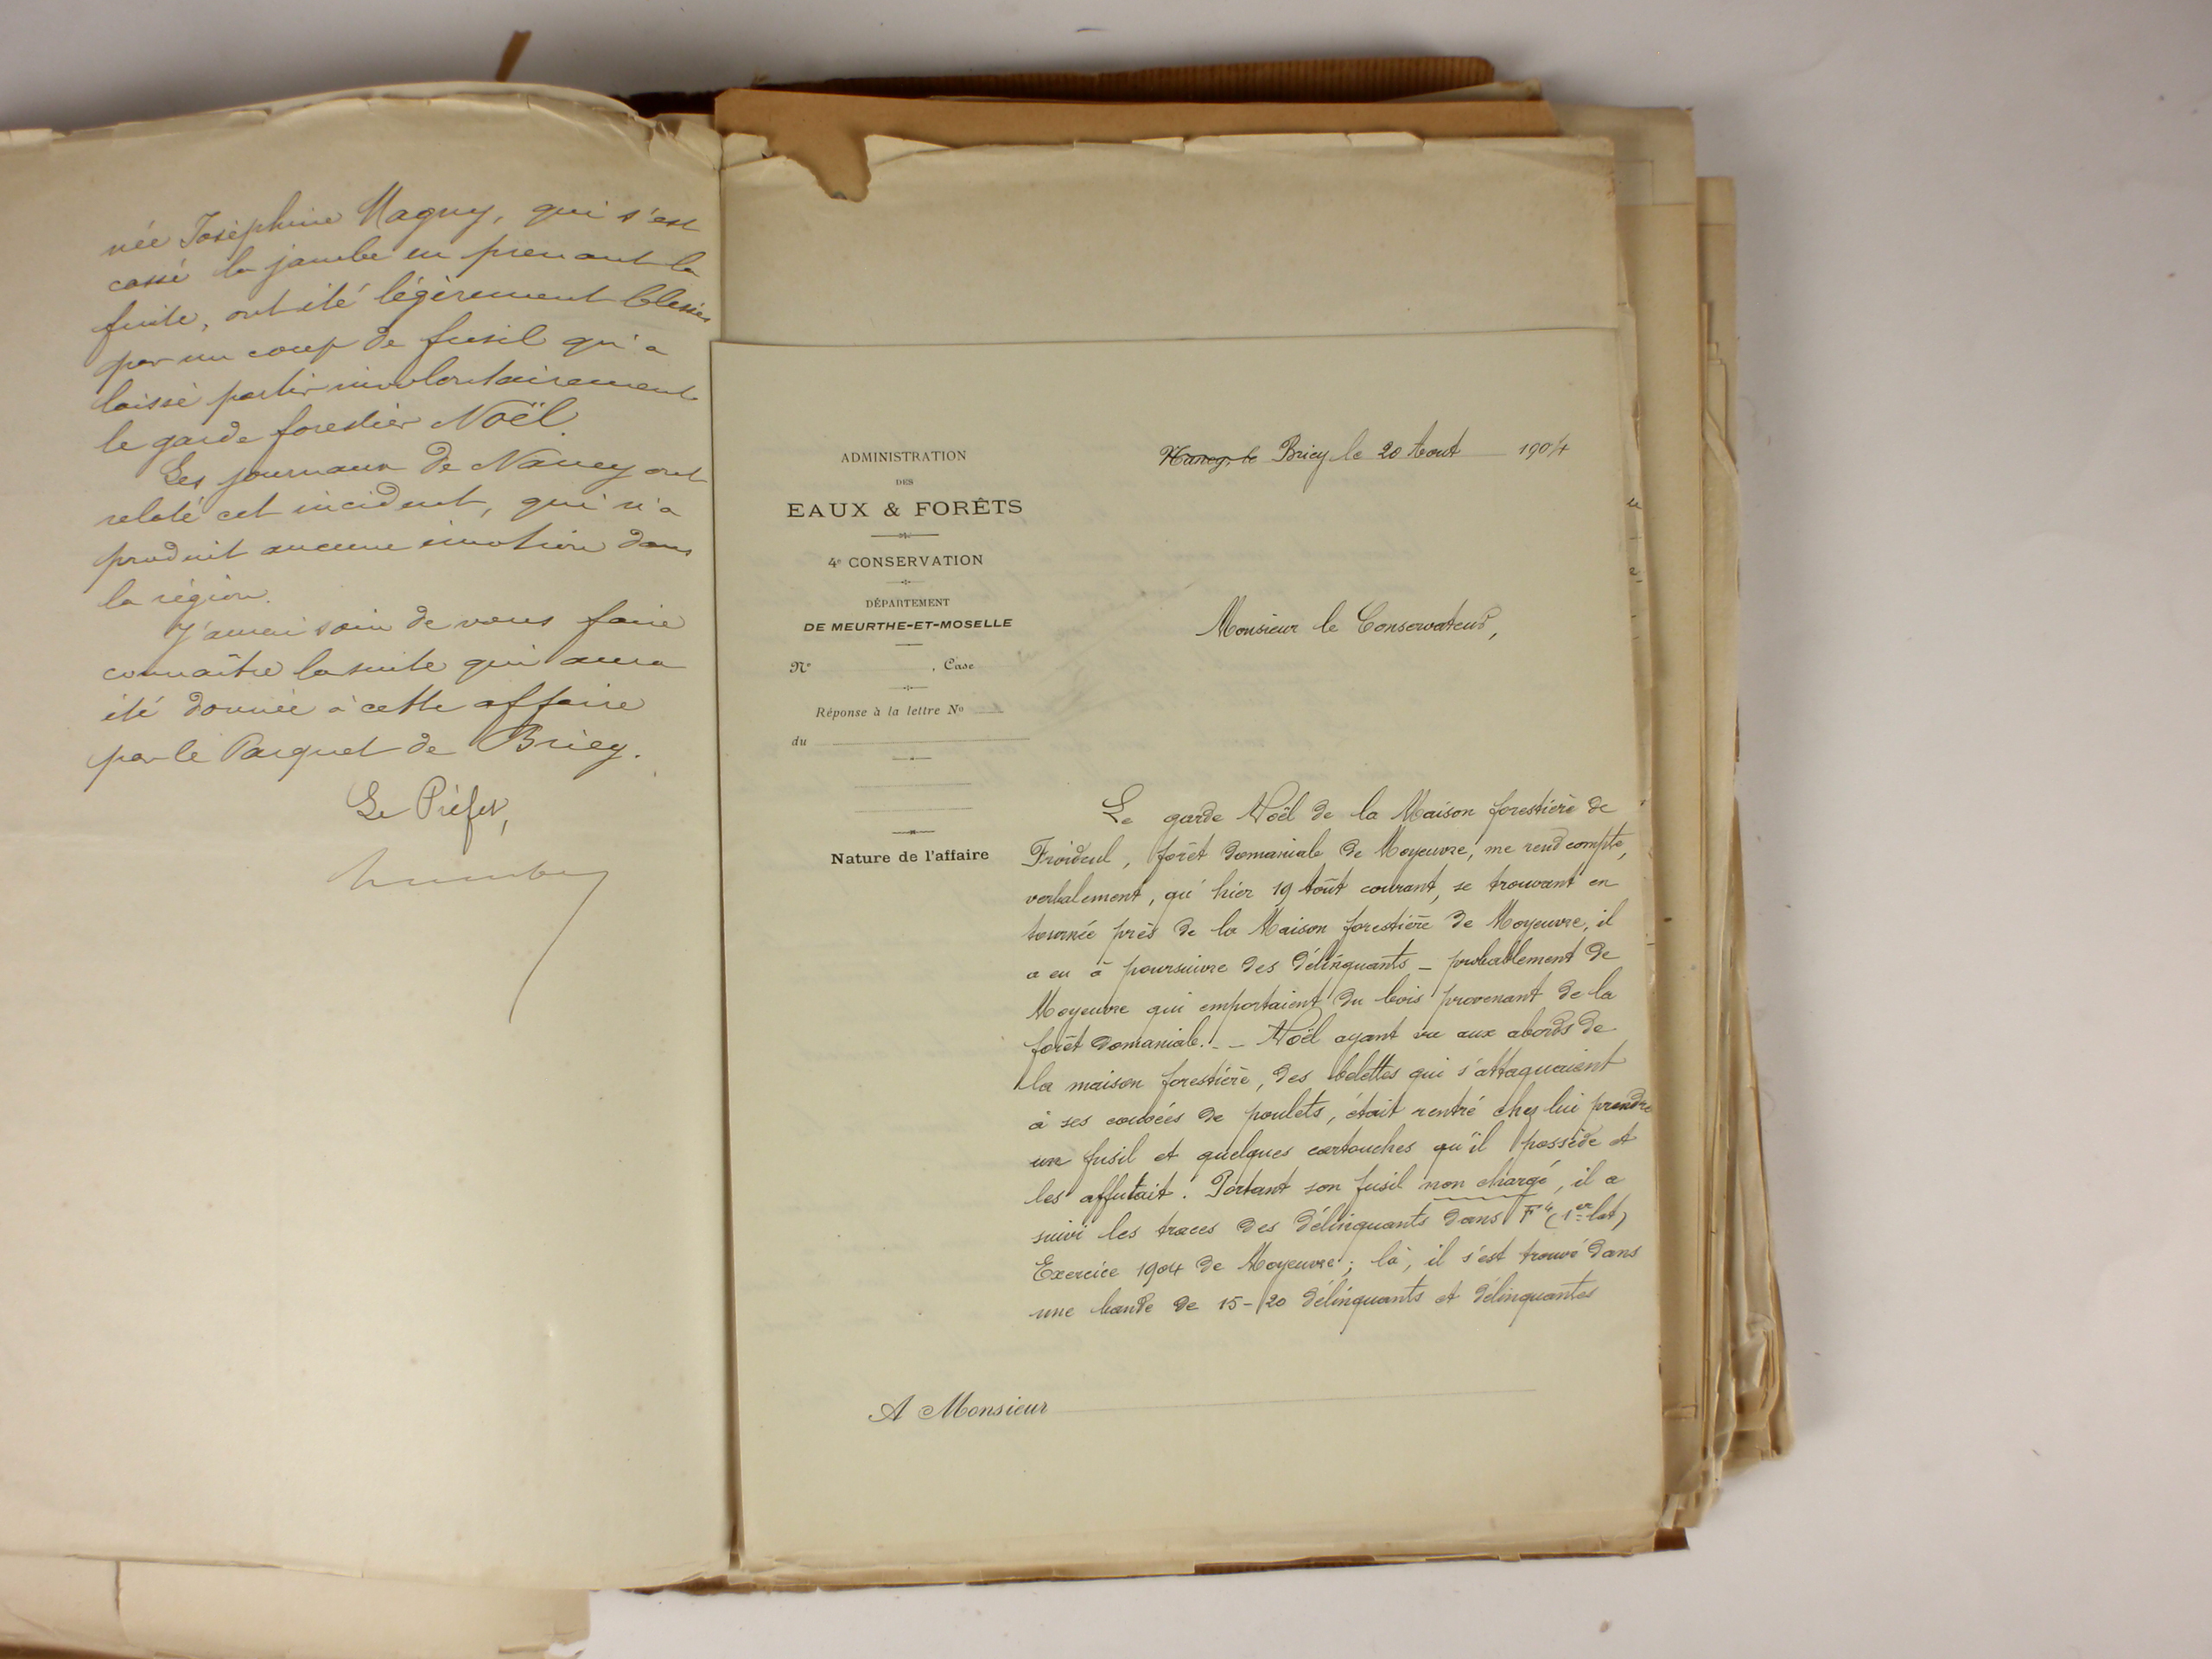 née Joséphine Magny, qui s'est
cassé la jambe en prenant la
fuite, ont été légèrement blessées
par un coup de fusil qu'a
laissé partir involontairement
le garde forestier Noël.
Les journaux de Nancy ont
relaté cet incident, qui n'a
produit aucune émotion dans
la région.
J'aurai soin de vous faire
connaître la suite qui aura
été donnée à cette affaire
par le Parquet de Briey.
Le Préfet,
ADMINISTRATION
DES
EAUX & FORÊTS
4e CONSERVATION
DÉPARTEMENT
DE MEURTHE-ET-MOSELLE
No , Case
Réponse à la lettre No
du
Nature de l'affaire
Nancy, le Briey le 20 Aout 1904
Monsieur le Conservateur,
Le garde Noël de la Maison forestière de
Froidcul, forêt domaniale de Moyeuvre, me rend compte,
verbalement, qu'hier 19 Août courant, se trouvant en
tournée près de la Maison forestière de Moyeuvre, il
a eu à poursuivre des délinquants - probablement de
Moyeuvre qui emportaient du bois provenant de la
forêt domaniale. - - Noël ayant vu aux abords de
la maison forestière, des belettes qui s'attaquaient
à ses couvées de poulets, était rentré chez lui prendre
un fusil et quelques cartouches qu'il possède et
les affutait. Portant son fusil non chargé, il a
suivi les traces des délinquants dans F4 (1er lot)
Exercice 1904 de Moyeuvre; là, il s'est trouvé dans
une bande de 15-20 délinquants et délinquantes
A Monsieur